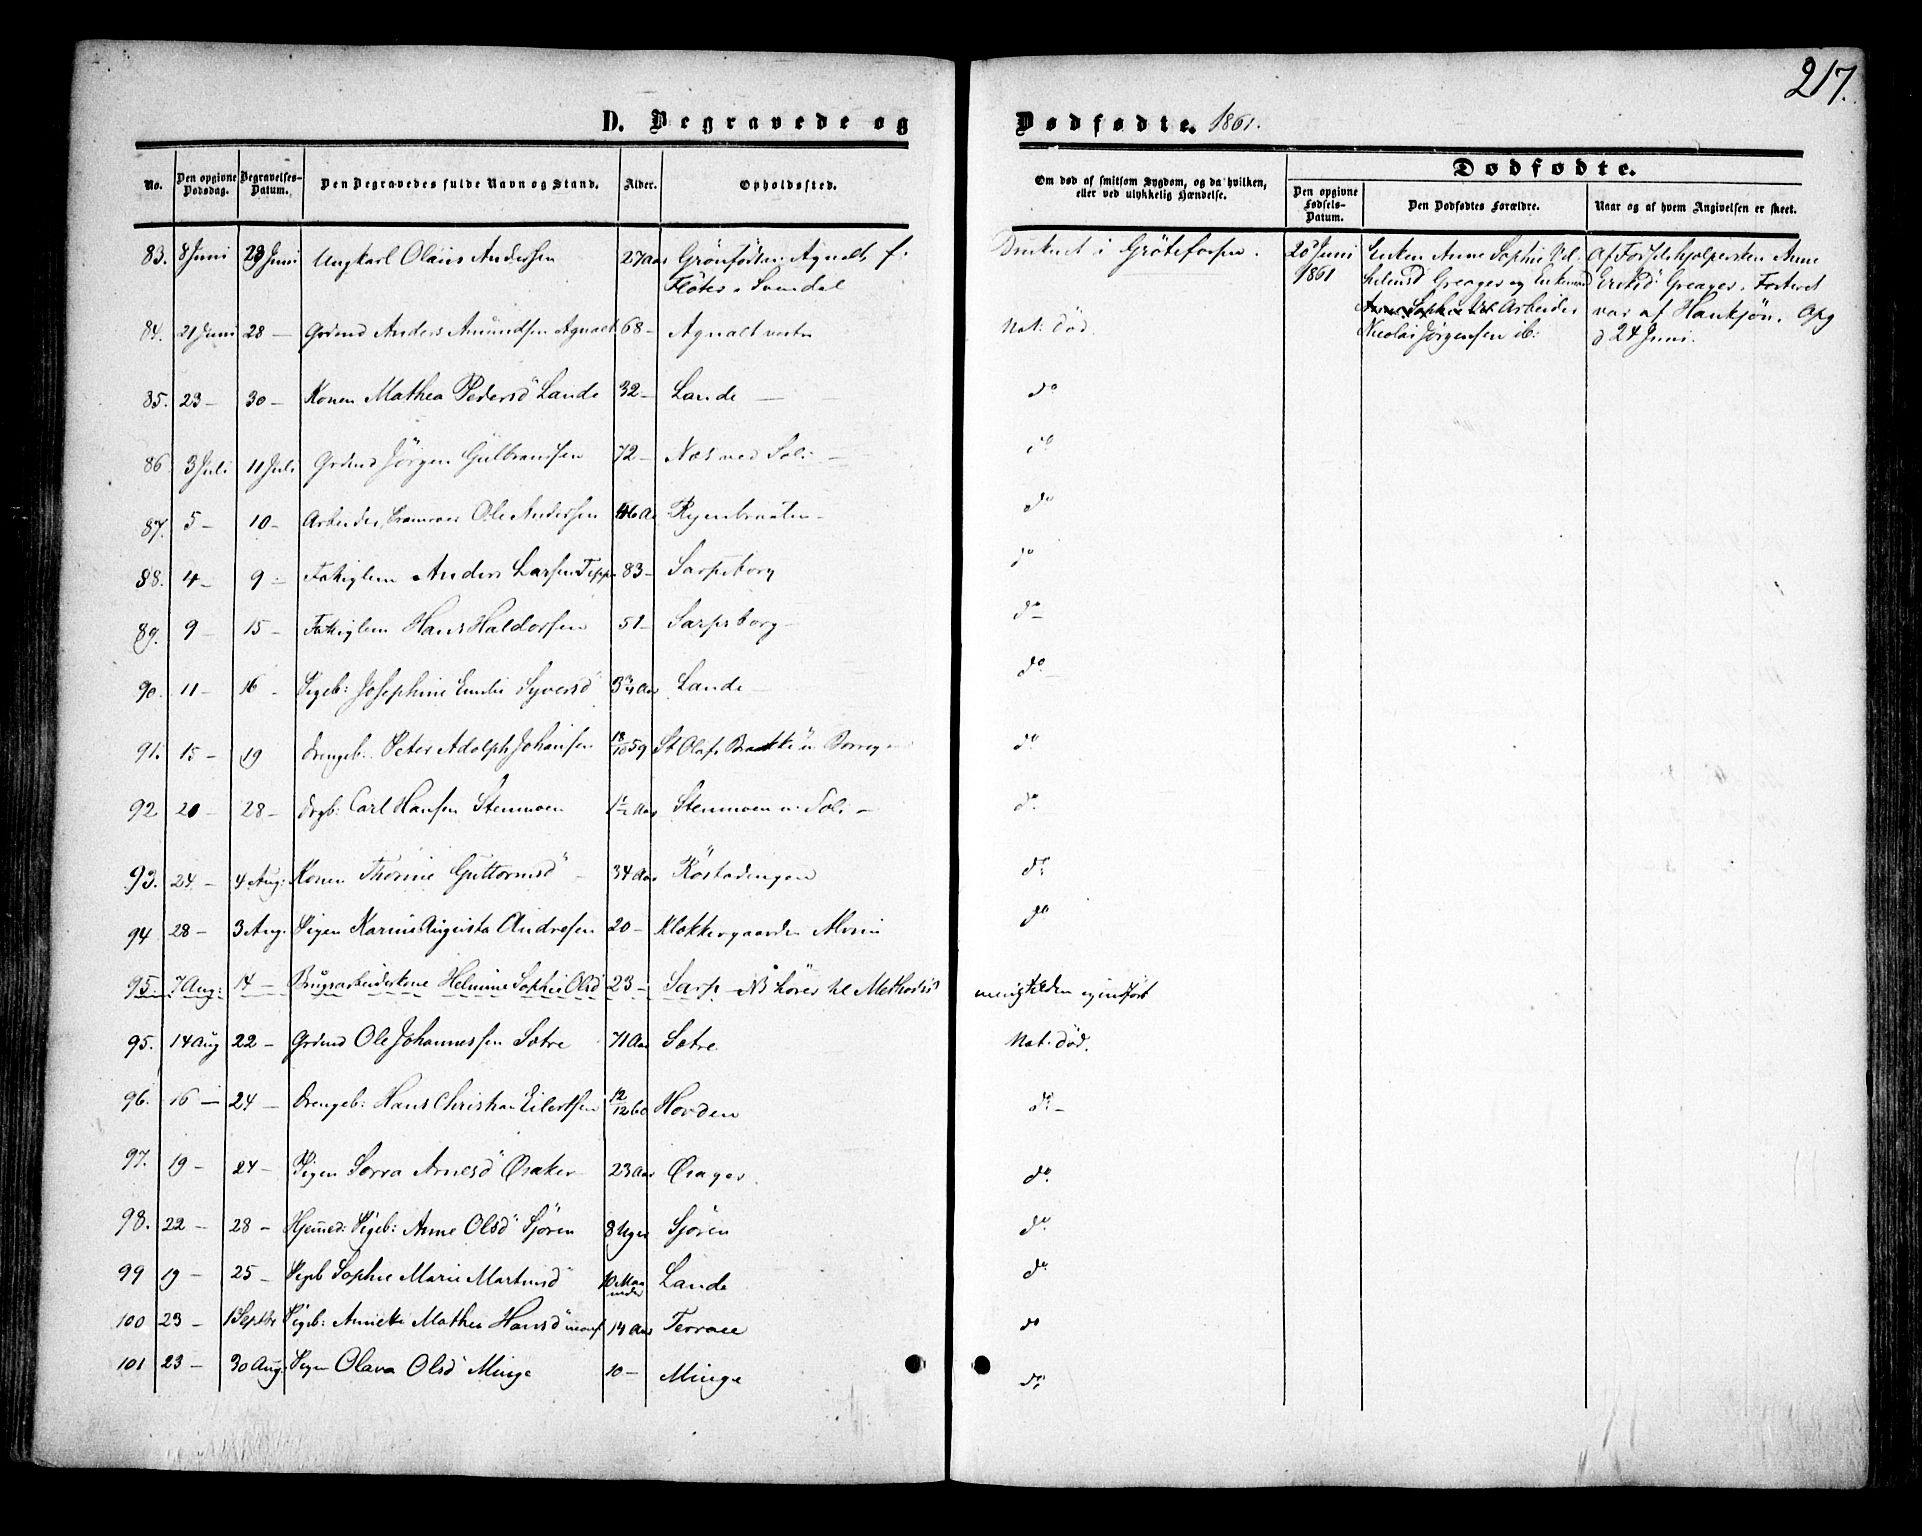 217.
D. Begravede og Dødfødte. 1861.
No. Den opgivne Dødsdag. Begravelses-Datum. Den Begravedes fulde Navn og Stand. Alder. Opholdssted. Om død af smitsom Sygdom, og da hvilken, eller ved ulykkelig Hændelse.
Dødfødte.
Den opgivne Fødsels-Datum. Den Dødfødtes Forældre. Naar og af hvem Angivelsen er skeet.
83. 8 Juni 23 Juni Ungkarl Olaus Andersen 27 Aar Agnalt, f.
Svendal
Druknet i Grötefossen.
84. 21 Juni 28 — Grdmd Anders Amundsen Agnalt 68 — Agnalt vestre Nat: död.
85. 23 — 30 — Konen Mathea Pedersd Lande 32 — Lande — do
86 3 Juli 11 Juli Grdmd Jörgen Gulbrandsen 72 — Næs ved Soli — do
87. 5 — 10 — Arbeider Ole Andersen 46 Aa do
88. 4 — 9 — Fattiglem Anders Larsen 83 — Sarpsborg do
89. 9 — 15 — Fattiglem Hans Haldorsen 51 — Sarpsborg — do —
90. 11 — 16 — Pigeb: Josephine Emilie Syversd 3 3/4 Aar Lande — do —
91. 15 — 19 Drengeb: Peter Adolph Johansen 18/10 59 St Olafs do
92 20 — 28 — Drgb: Carl Hansen Stenmoen 1 1/2 Aar Stenmoen v. Soli — do
93. 24 — 4 Aug: Konen Thorine Guttormsd — 34 Aar do
94 28 — 3 Aug. Pigen Karine Augusta Andresen 20 — Klokkergaarden Alvim do
95. 7 Aug: 14 — Brugsarbeiderkone Helmine Sophie Olsd 23 — Sarp — NB hörer til Methodist
menigheden
95. 14 Aug 22 — Grdmd Ole Johannessen Sætre 71 Aar Sætre Nat. död.
96. 16 — 24 — Drengeb: Hans Christian Eilertsen 12/12 60 Horden do —
97. 19 — 24 — Pigen Arnesd 23 Aar do
98. 22 — 28 — Hjemmed: Pigeb: Anne Olsd Sjören 8 Uger Sjören do
99 19 — 25 — Pigeb Sophie Marie Martinsd 10 Maaneder Lande do
100 23 — 1 Septbr Pigeb: Annette Mathea Hansd 14 Aar Terrasse do
101 23 — 30 Aug: Pigen Olava Olsd Minge 10 — Minge do
20 Juni 1861
Enken Anne Sophie
Greager og Enkemand
Arbeider
Nicolai Jörgensen ib:
Af Fødselshjelpersken Anne
Greager. Fosteret
var af Hankjön. Opg
d 24 Juni.